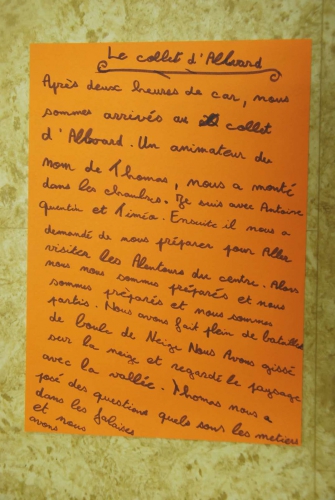 Le collet d'Allevard
Après deux heures de car, nous
sommes arrivés au collet
d'Allevard. Un animateur du
nom de Thomas, nous a monté
dans les chambres. Je suis avec Antoine
quentin et Timéo. Ensuite il nous a
demandé de nous préparer pour Aller
visiter les Alentours du centre. Alors
nous nous sommes préparés et nous
sommes préparés et nous sommes
partis. Nous avons fait plein de batailles
de boule de Neige Nous Avons glissé
sur la neige et regardé le paysage
avec la vallée. Thomas nous a
posé des questions quels sons les metiers
dans les falaises
et nous
avons